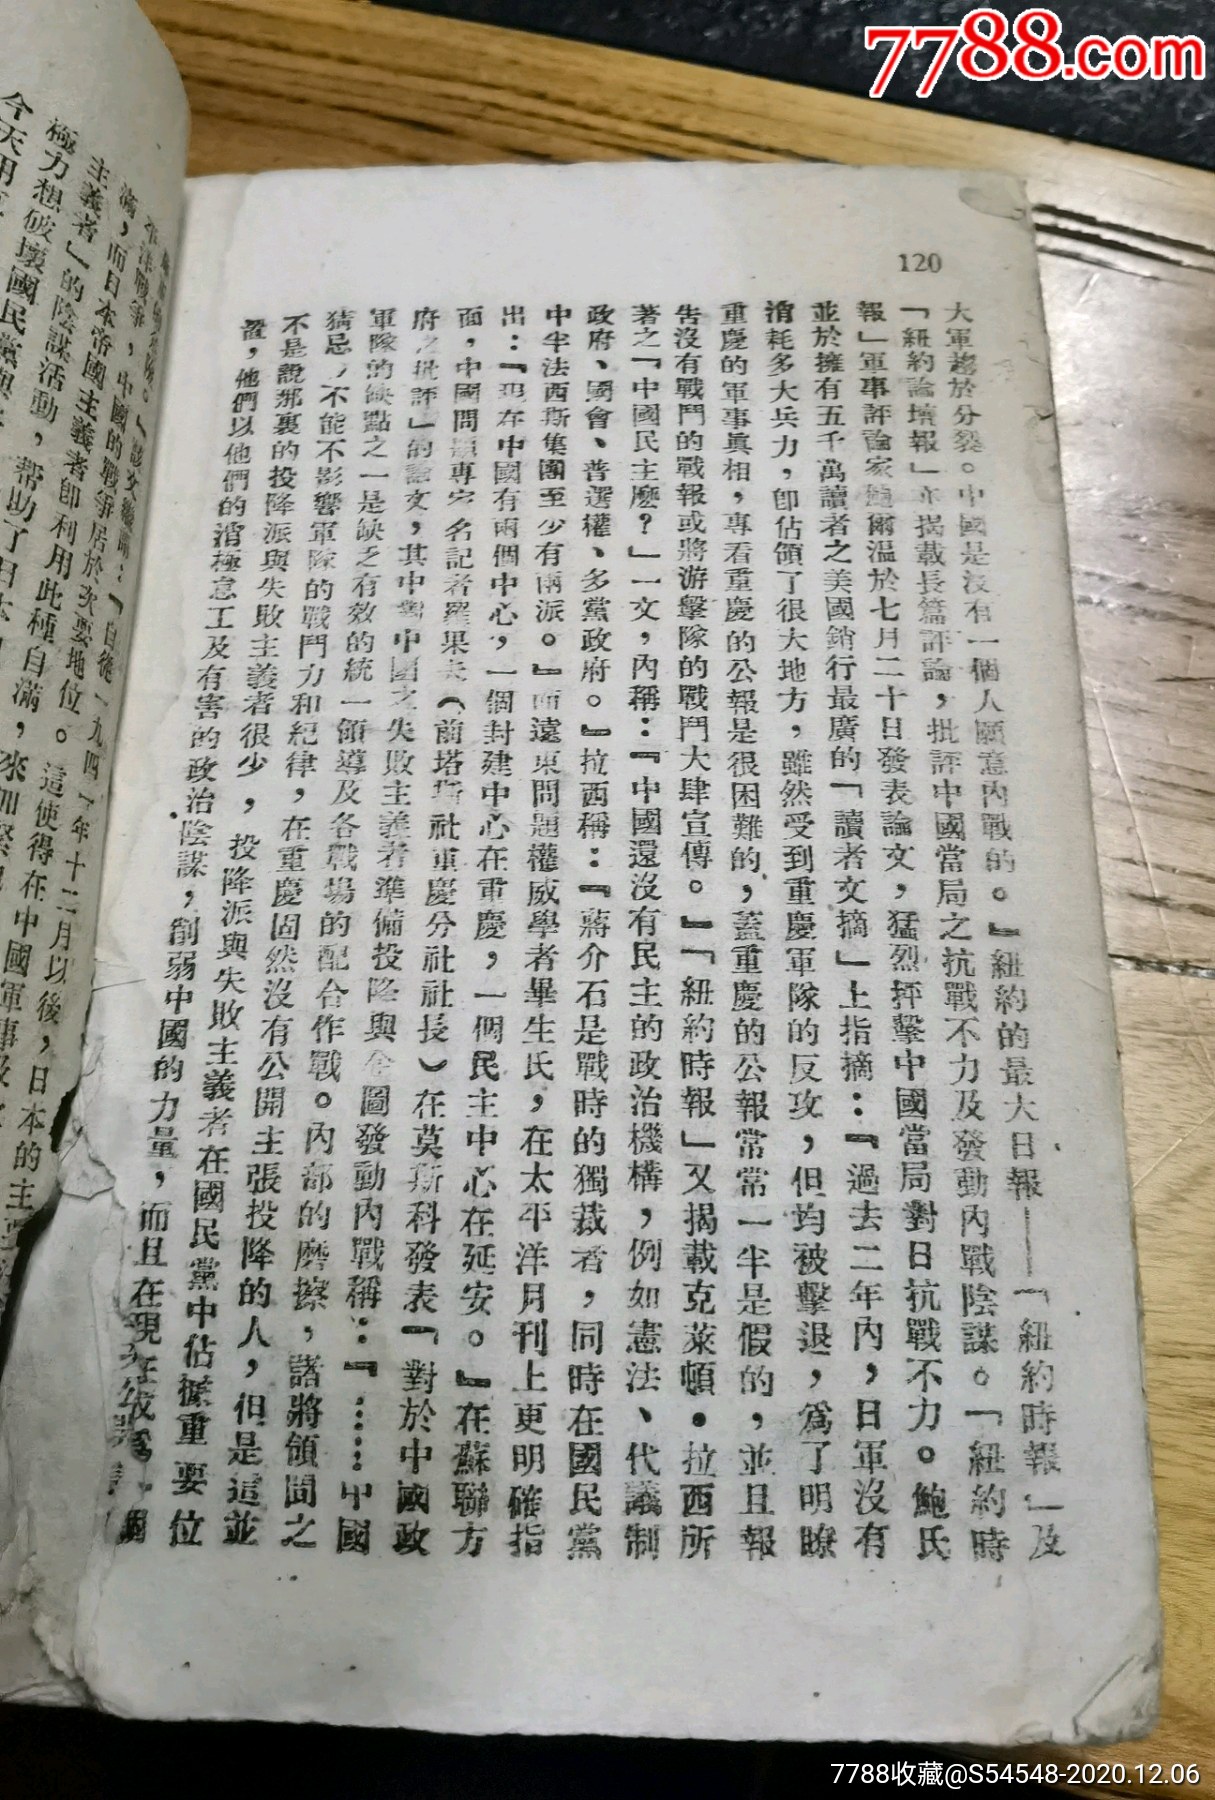 7788.com
120
大軍趨於分裂。中國是沒有一個人願意內戰的。』紐約的最大日報——「紐約時報」及
「紐約論壇報」亦揭載長篇評論，批評中國當局之抗戰不力及發動內戰陰謀。「紐約時
報」軍事評論家鮑爾溫於七月二十日發表論文，猛烈抨擊中國當局對日抗戰不力。鮑氏
並於擁有五千萬讀者之美國銷行最廣的「讀者文摘」上指摘：『過去二年內，日軍沒有
消耗多大兵力，卽佔領了很大地方，雖然受到重慶軍隊的反攻，但均被擊退，爲了明瞭
重慶的軍事眞相，專看重慶的公報是很困難的，蓋重慶的公報常常一半是假的，並且報
告沒有戰鬥的戰報或將游擊隊的戰鬥大肆宣傳。』「紐約時報」又揭載克萊頓·拉西所
著之「中國民主麽？」一文，內稱：『中國還沒有民主的政治機構，例如憲法、代議制
政府、國會、普選權、多黨政府。』拉西稱：『蔣介石是戰時的獨裁者，同時在國民黨
中半法西斯集團至少有兩派。』而遠東問題權威學者畢生氏，在太平洋月刊上更明確指
出：『現在中國有兩個中心，一個封建中心在重慶，一個民主中心在延安。』在蘇聯方
面，中國問題專家名記者羅果夫（前塔斯社重慶分社社長）在莫斯科發表「對於中國政
府之批評」的論文，其中對中國之失敗主義者準備投降與企圖發動內戰稱：『……中國
軍隊的缺點之一是缺乏有效的統一領導及各戰場的配合作戰。內部的磨擦，諸將領間之
猜忌，不能不影響軍隊的戰鬥力和紀律，在重慶固然沒有公開主張投降的人，但是這並
不是說那裏的投降派與失敗主義者很少，投降派與失敗主義者在國民黨中佔據重要位
置，他們以他們的消極怠工及有害的政治陰謀，削弱中國的力量，而且在現在
平洋戰爭
滿，而日本帝國主義者卽利用此種自滿，來加緊
主義者」的陰謀活動，帮助了日本
極力想破壞國民黨與
今天用
7788收藏@S54548-2020.12.06